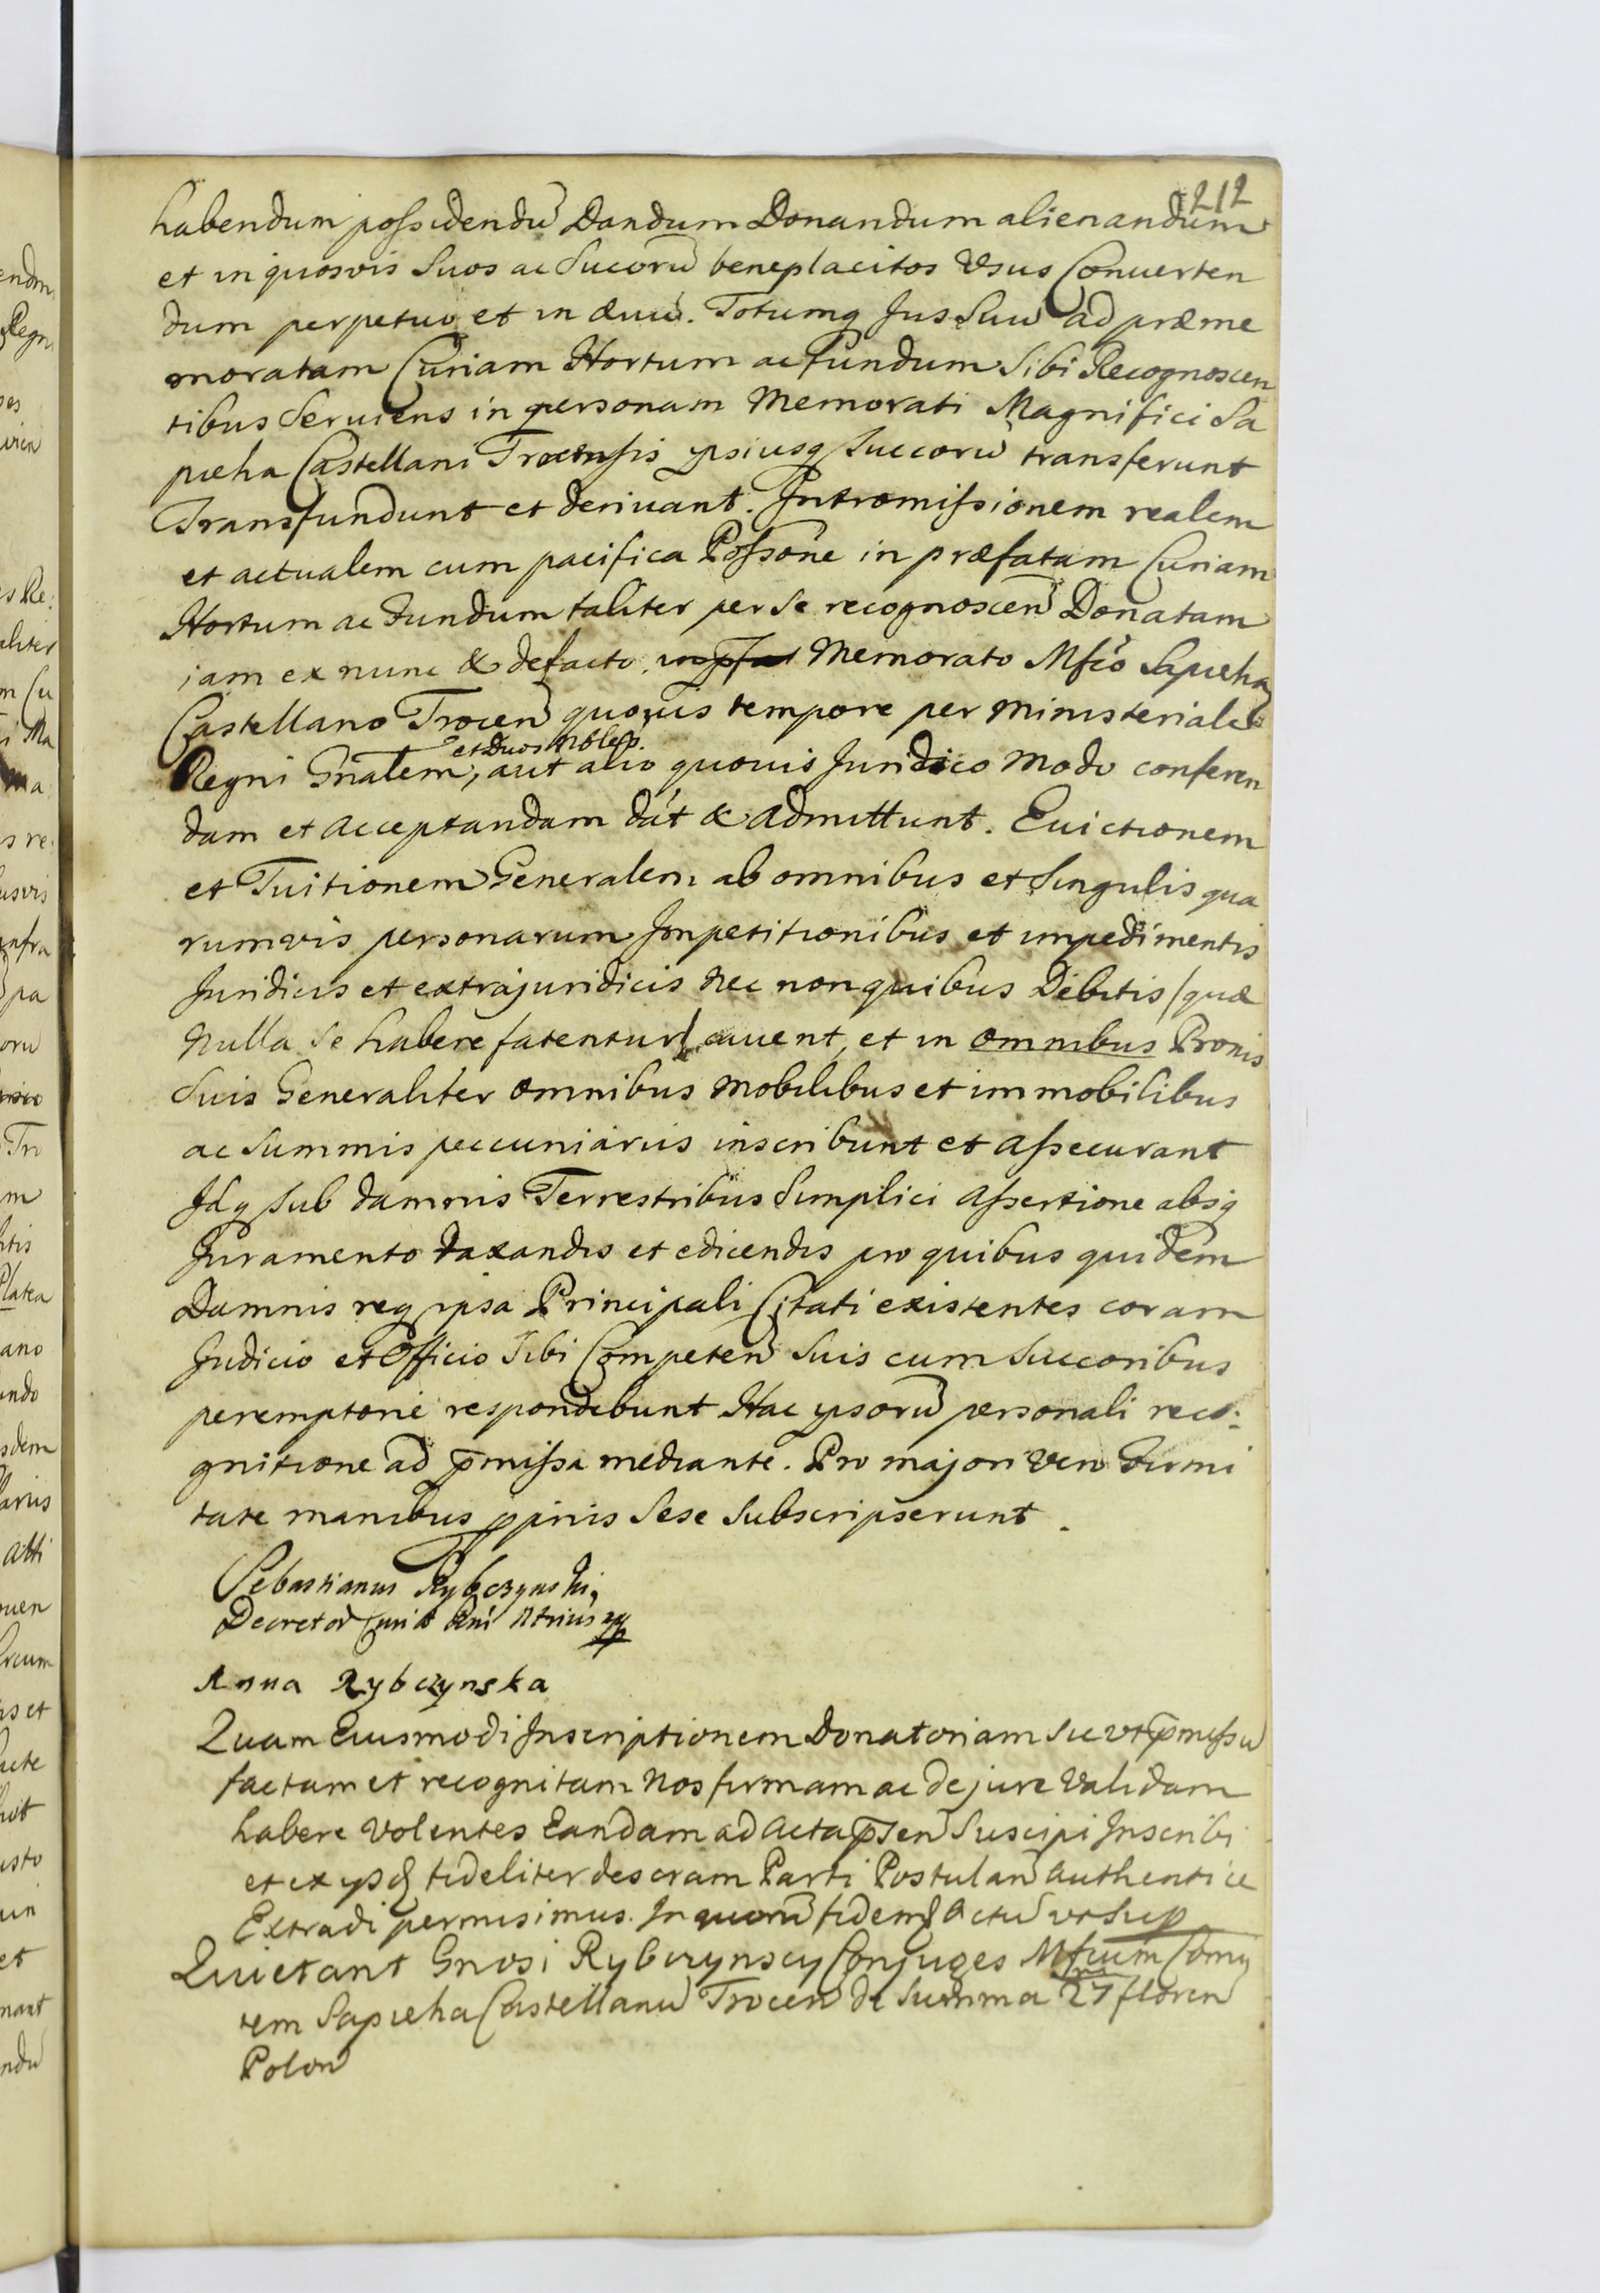 212
habendum possidendũ Dandum Donandum alienandum
et in quosvis Suos ac Sucorũ beneplacitos Vsus Conuerten
dum perpetuo et in æuũ. Totumq Jus Suũ ad præme
moratam Curiam Hortum ac fundum Sibi Recognoscen
tibus Seruiens in personam Memorati Magnifici Sa
pieha Castellani Trocensis ipsiusq Succorũ transferunt
Transfundunt et deriuant. Intromissionem realem
et actualem cum pacifica Possone in præfatam Curiam
Hortum ac Fundum taliter per Se recognoscen Donatam
iam ex nunc & defacto Memorato Mfco Sapieha
Castellano Trocen quouis tempore per Ministerialem
et Duos Nobles.
Regni Gnalem, aut alio quouis Juridico Modo conferen
dam et Acceptandam dat & Admittunt. Euictionem
et Tuitionem Generalem ab omnibus et Singulis qua
rumvis personarum Impetitionibus et impedimentis
Juridicis et extrajuridicis Nec non quibus Debitis /quæ
Nulla Se habere fatentur/ cauent, et in omnibus Bonis
Suis Generaliter omnibus Mobilibus et immobilibus
ac Summis peccuniariis inscribunt et Assecurant
Idq Sub damnis Terrestribus Simplici Assertione absq
Juramento taxandis et edicendis pro quibus quidem
Damnis req ipsa Principali Citati existentes coram
Judicio et Officio Sibi Competen Suis cum Succoribus
peremptorie respondebunt Hac ipsorũ personali reco:
gnitione ad pmissa mediante. Pro majori Vero Firmi
tate manibus ppriis Sese Subscripserunt.
Sebastianus Rybczynski
Decretor Curiæ
Anna Rybczynska
Quam Eiusmodi Inscriptionem Donatoriam Sic vt pmissũ
factam et recognitam Nos firmam ac de jure Validam
habere Volentes Eandam ad Acta psen Suscipi Inscribi
et ex ysd fideliter descram Parti Postulan Authentice
Extradi permisimus. In quorũ fidem Actũ vt Sup
Quietant Gnosi Rybczynscy Conjuges Mfcum
tem Sapieha Castellanũ Trocen de Summa 27 floren
Polon